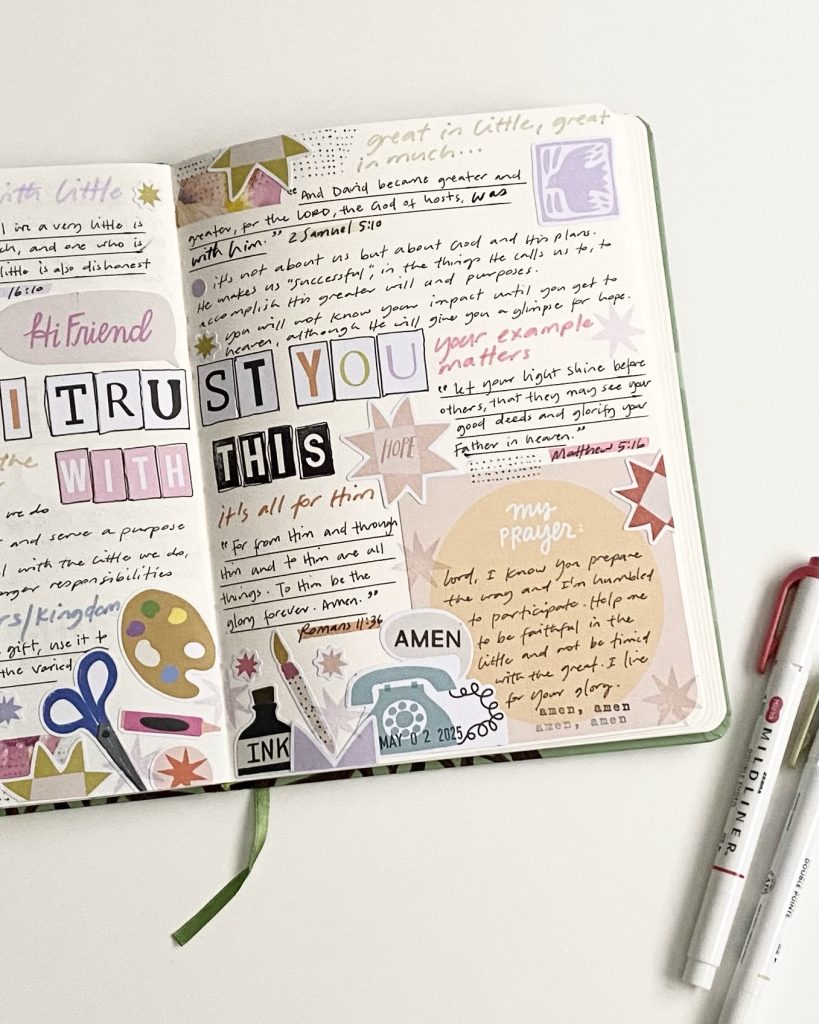 with little
l in a very little is
ch, and one who is
little is also dishonest
16:10
Hi Friend
I TRUST YOU
the
WITH THIS
we do
t and serve a purpose
l with the little we do,
nger responsibilities
rs/kingdom
gift, use it to
the varied
great in little, great
in much...
"And David became greater and
greater, for the LORD, the God of hosts, was
with him." 2 Samuel 5:10
it's not about us but about God and His plans.
He makes us "successful", in the things He calls us to, to
accomplish His greater will and purposes.
you will not know your impact until you get to
heaven, although He will give you a glimpse for hope.
your example
matters
"let your light shine before
others, that they may see your
good deeds and glorify your
Father in heaven."
Matthew 5:16
HOPE
it's all for Him
"For from Him and through
Him and to Him are all
things. To Him be the
glory forever. Amen."
Romans 11:36
my
PRAYER:
Lord, I know you prepare
the way and I'm humbled
to participate. Help me
to be faithful in the
little and not be timid
with the great. I live
for your glory.
amen, amen
amen, amen
AMEN
INK
MAY 02 2025
ZEBRA
MILDLINER
DOUBLE ENDED
DOUBLE POINTE